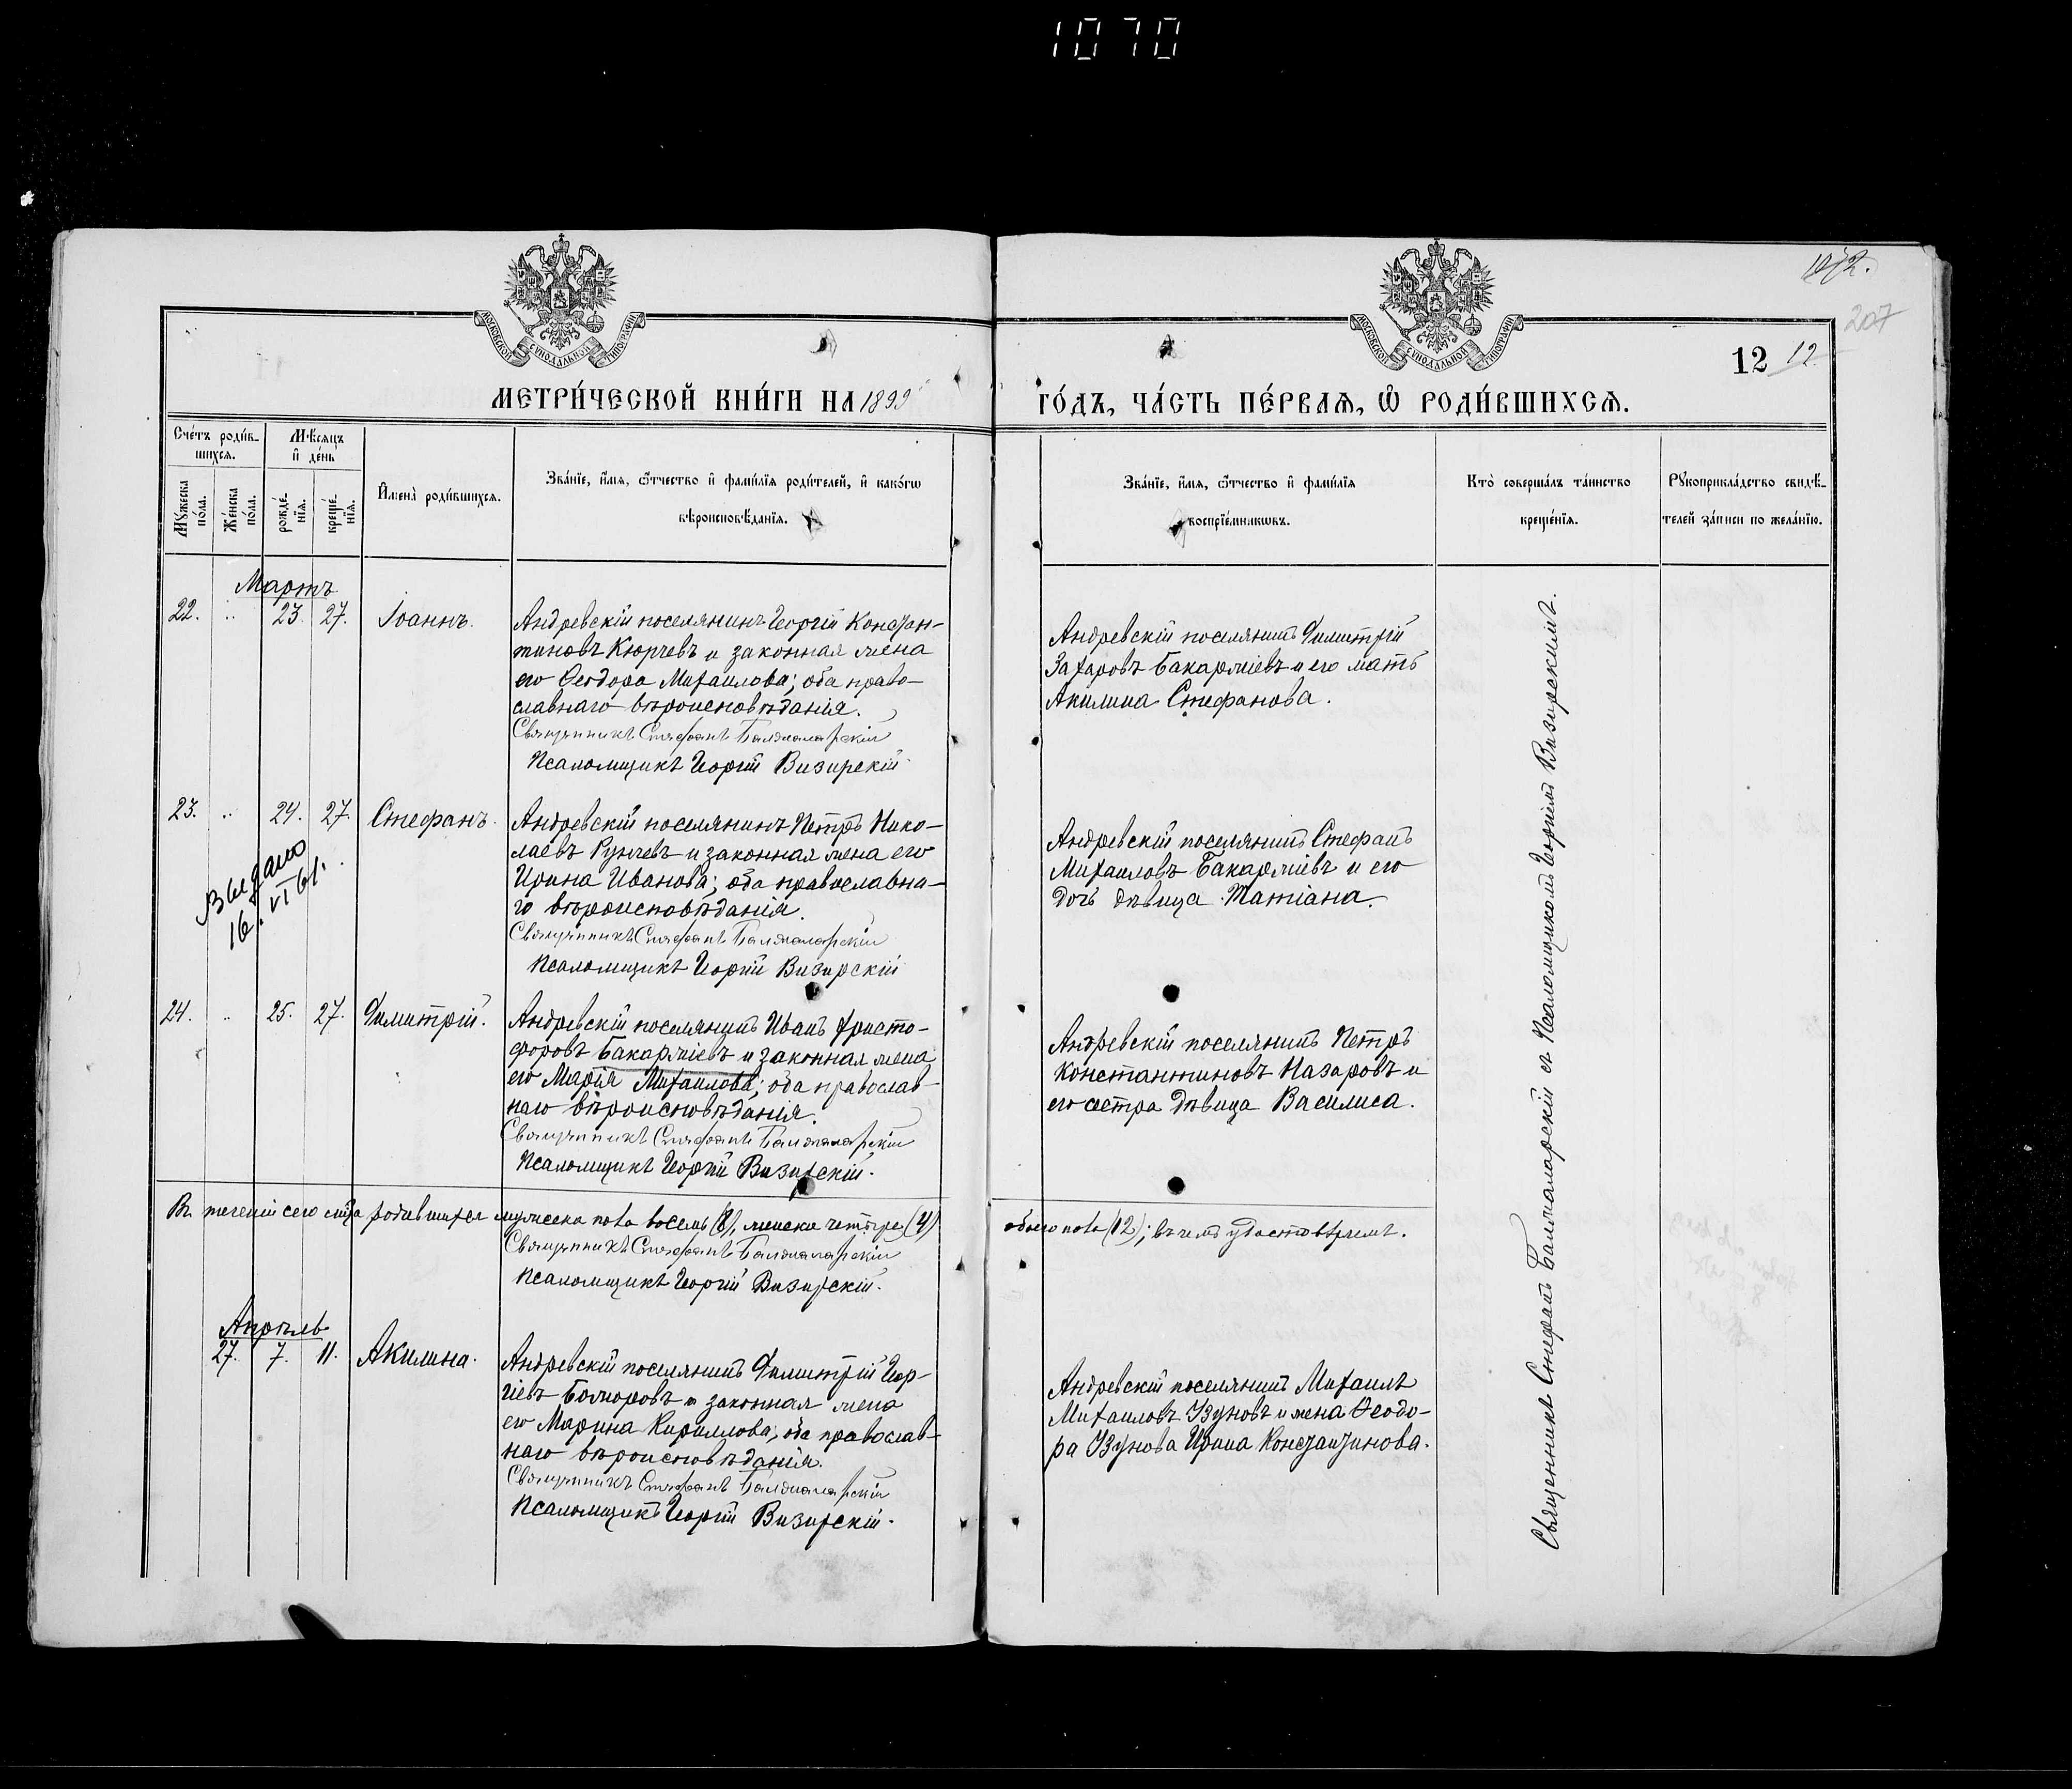 1070
1072.
207
МОСКОВСКОЙ СѴНОДАЛЬНОЙ ТИПОГРАФІИ
МОСКОВСКОЙ СѴНОДАЛЬНОЙ ТИПОГРАФІИ
12 12
МЕТРИ́ЧЕСКОЙ КНИ́ГИ НА 1899
ГО́ДЪ, ЧА́СТЬ ПЕ́РВАѦ, Ѽ РОДИ́ВШИХСѦ.
Сче́тъ роди́в-
шихсѧ.
Мѣ́сѧцъ
и҆ де́нь
Мꙋ́жеска по́ла.
Же́нска по́ла.
рожде́-
нїѧ.
креще́-
нїѧ.
И҆мена̀ роди́вшихсѧ.
Зва́нїе, и҆́мѧ, ѻ҆́тчество и҆ фами́лїѧ роди́телей, и҆ како́гѡ
вѣроисповѣ́данїѧ.
Зва́нїе, и҆́мѧ, ѻ҆́тчество и҆ фами́лїѧ
воспрїе́мникѡвъ.
Кто̀ соверша́лъ та́инство
креще́нїѧ.
Рꙋкоприкла́дство свидѣ́-
телей за́писи по жела́нїю.
Мартъ
22. .. 23. 27. Іоаннъ.
Андревскій поселянинъ Георгій Констан-
тиновъ Кюрчевъ и законная жена
его Ѳеодора Михаилова; оба право-
славнаго вѣроисповѣданія.
Священникъ Стефанъ Балжаларскій
Псаломщикъ Георгій Визирскій
Андревскій поселянинъ Димитрій
Захаровъ Бакаржіевъ и его мать
Акилина Стефанова.
23. .. 24. 27. Стефанъ.
Выдано
16. VI 61.
Андревскій поселянинъ Петръ Нико-
лаевъ Рунчевъ и законная жена его
Ирина Иванова; оба православна-
го вѣроисповѣданія.
Священникъ Стефанъ Балжаларскій
Псаломщикъ Георгій Визирскій
Андревскій поселянинъ Стефанъ
Михаиловъ Бакаржіевъ и его
дочь дѣвица Татіана.
24. .. 25. 27. Димитрій.
Андревскій поселянинъ Иванъ Христо-
форовъ Бакаржіевъ и законная жена
его Марія Михаилова; оба православ-
наго вѣроисповѣданія.
Священникъ Стефанъ Балжаларскій
Псаломщикъ Георгій Визирскій.
Андревскій поселянинъ Петръ
Константиновъ Назаровъ и
его сестра дѣвица Василиса.
Въ теченіи сего мѣсяца родившихся мужеска пола восемь (8), женска четыре (4)
обоего пола (12); въ чемъ удостовѣряемъ.
Священникъ Стефанъ Балжаларскій
Псаломщикъ Георгій Визирскій.
Апрѣль
27. 7. 11. Акилина.
Андревскій поселянинъ Димитрій Геор-
гіевъ Божоровъ и законная жена
его Марина Кириллова; оба православ-
наго вѣроисповѣданія.
Священникъ Стефанъ Балжаларскій
Псаломщикъ Георгій Визирскій.
Андревскій поселянинъ Михаилъ
Михаиловъ Узуновъ и жена Ѳеодо-
ра Узунова Ирина Константинова.
Священникъ Стефанъ Балжаларскій съ Псаломщикомъ Георгіемъ Визирскимъ.